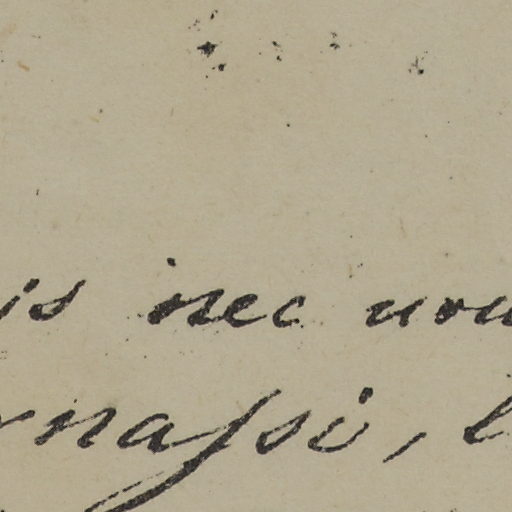 is nec non
rnassi, l